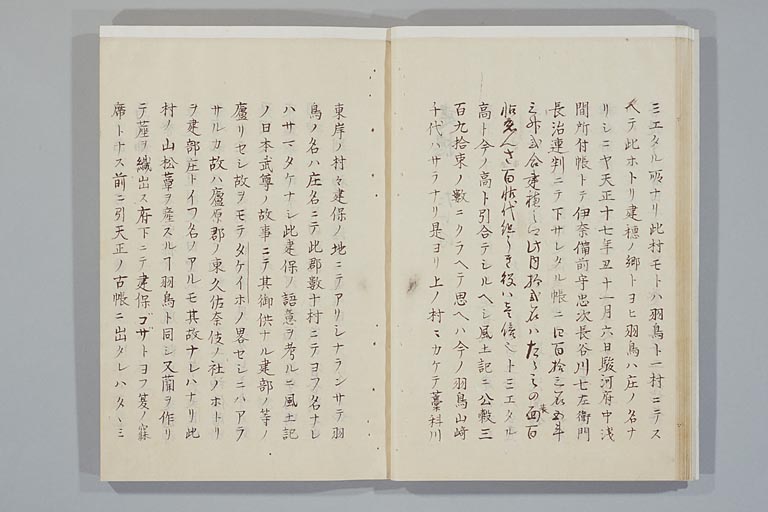 ミエタル所ナリ此村モトハ羽鳥ト一村ニテス
ヘテ此ホトリ建穂ノ郷トヨヒ羽鳥ハ庄ノ名ナ
リシニヤ天正十七年丑十一月六日駿河府中浅
間所付帳トテ伊奈備前守忠次長谷川七左衛門
長治連判ニテ下サレタル帳ニ百拾三石五斗
三升弐合建穂
トミエタル
高ト今ノ高ト引合テシルヘシ風土記ニ公穀三
百九拾束ノ数ニクラヘテ思ヘハ今ノ羽鳥山崎
千代ハサラナリ是ヨリ上ノ村ミカケテ藁科川
東岸ノ村々建保ノ地ニテアリシナランサテ羽
鳥ノ名ハ庄名ニテ此郡数十村ニテヨフ名ナレ
ハサマタケナシ此建保ノ語意ヲ考ルニ風土記
ノ日本武尊ノ故事ニテ其御供ナル建部ノ等ノ
廬リセシ故ヲモテタケイホノ畧セシニハアラ
サルカ故ハ廬原郡ノ東久佐奈伎ノ社ノホトリ
ヲ建部庄トイフ名ノアルモ其故ナレハナリ此
村ノ山松蕈ヲ産スルヿ羽鳥ト同シ又藺ヲ作リ
テ莚ヲ織出ス府下ニテ建保ゴザトヨフ夏ノ寐
席トナス前ニ引天正ノ古帳ニ出タレハタヽミ